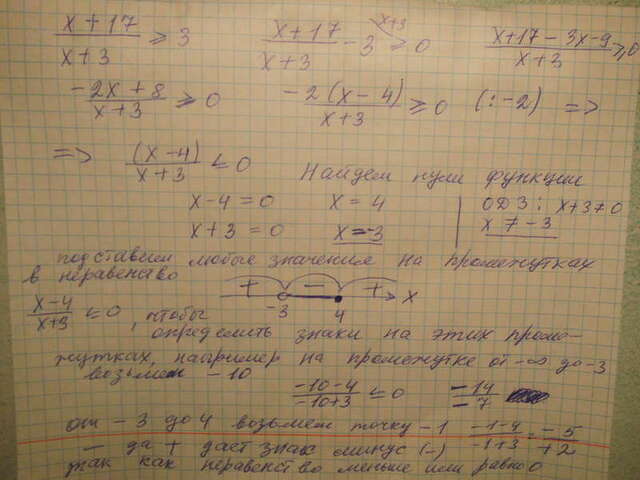 x+17/x+3 ≥ 3 x+17/x+3 - 3 ≥ 0 x+3 x+17-3x-9/x+3 ≥ 0
-2x+8/x+3 ≥ 0 -2(x-4)/x+3 ≥ 0 (:-2) =>
=> (x-4)/x+3 ≤ 0 Найдем нули функции
x-4=0 x=4 ОДЗ: x+3≠0
x+3=0 x=-3 x≠-3
подставим любые значения на промежутках
в неравенство + - + x
-3 4
x-4/x+3 ≤ 0, чтобы
определить знаки на этих проме-
жутках, например на промежутке от -∞ до -3
возьмем -10
-10-4/-10+3 ≤ 0 -14/-7
от -3 до 4 возьмем точку -1 -1-4/-1+3 = -5/+2
- да + дает знак минус (-)
так как неравенство меньше или равно 0